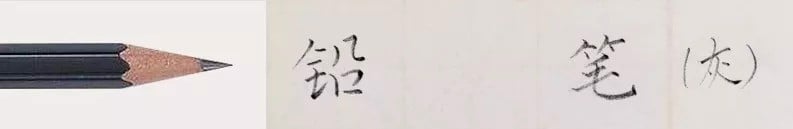 铅笔(灰)